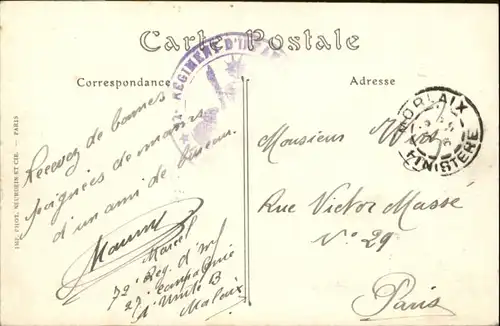 Carte Postale
Correspondance
Adresse
RÉGIMENT D'IN
MORLAIX
FINISTÈRE
IMP. PHOT. NEURDEIN ET CIE. — PARIS
Recevez de bonnes
poignées de mains
d'un ami de
Marcel
72e Rég. d'Inf
27e Compagnie
d'Unité B
Monsieur
Rue Victor Massé
N° 29
Paris